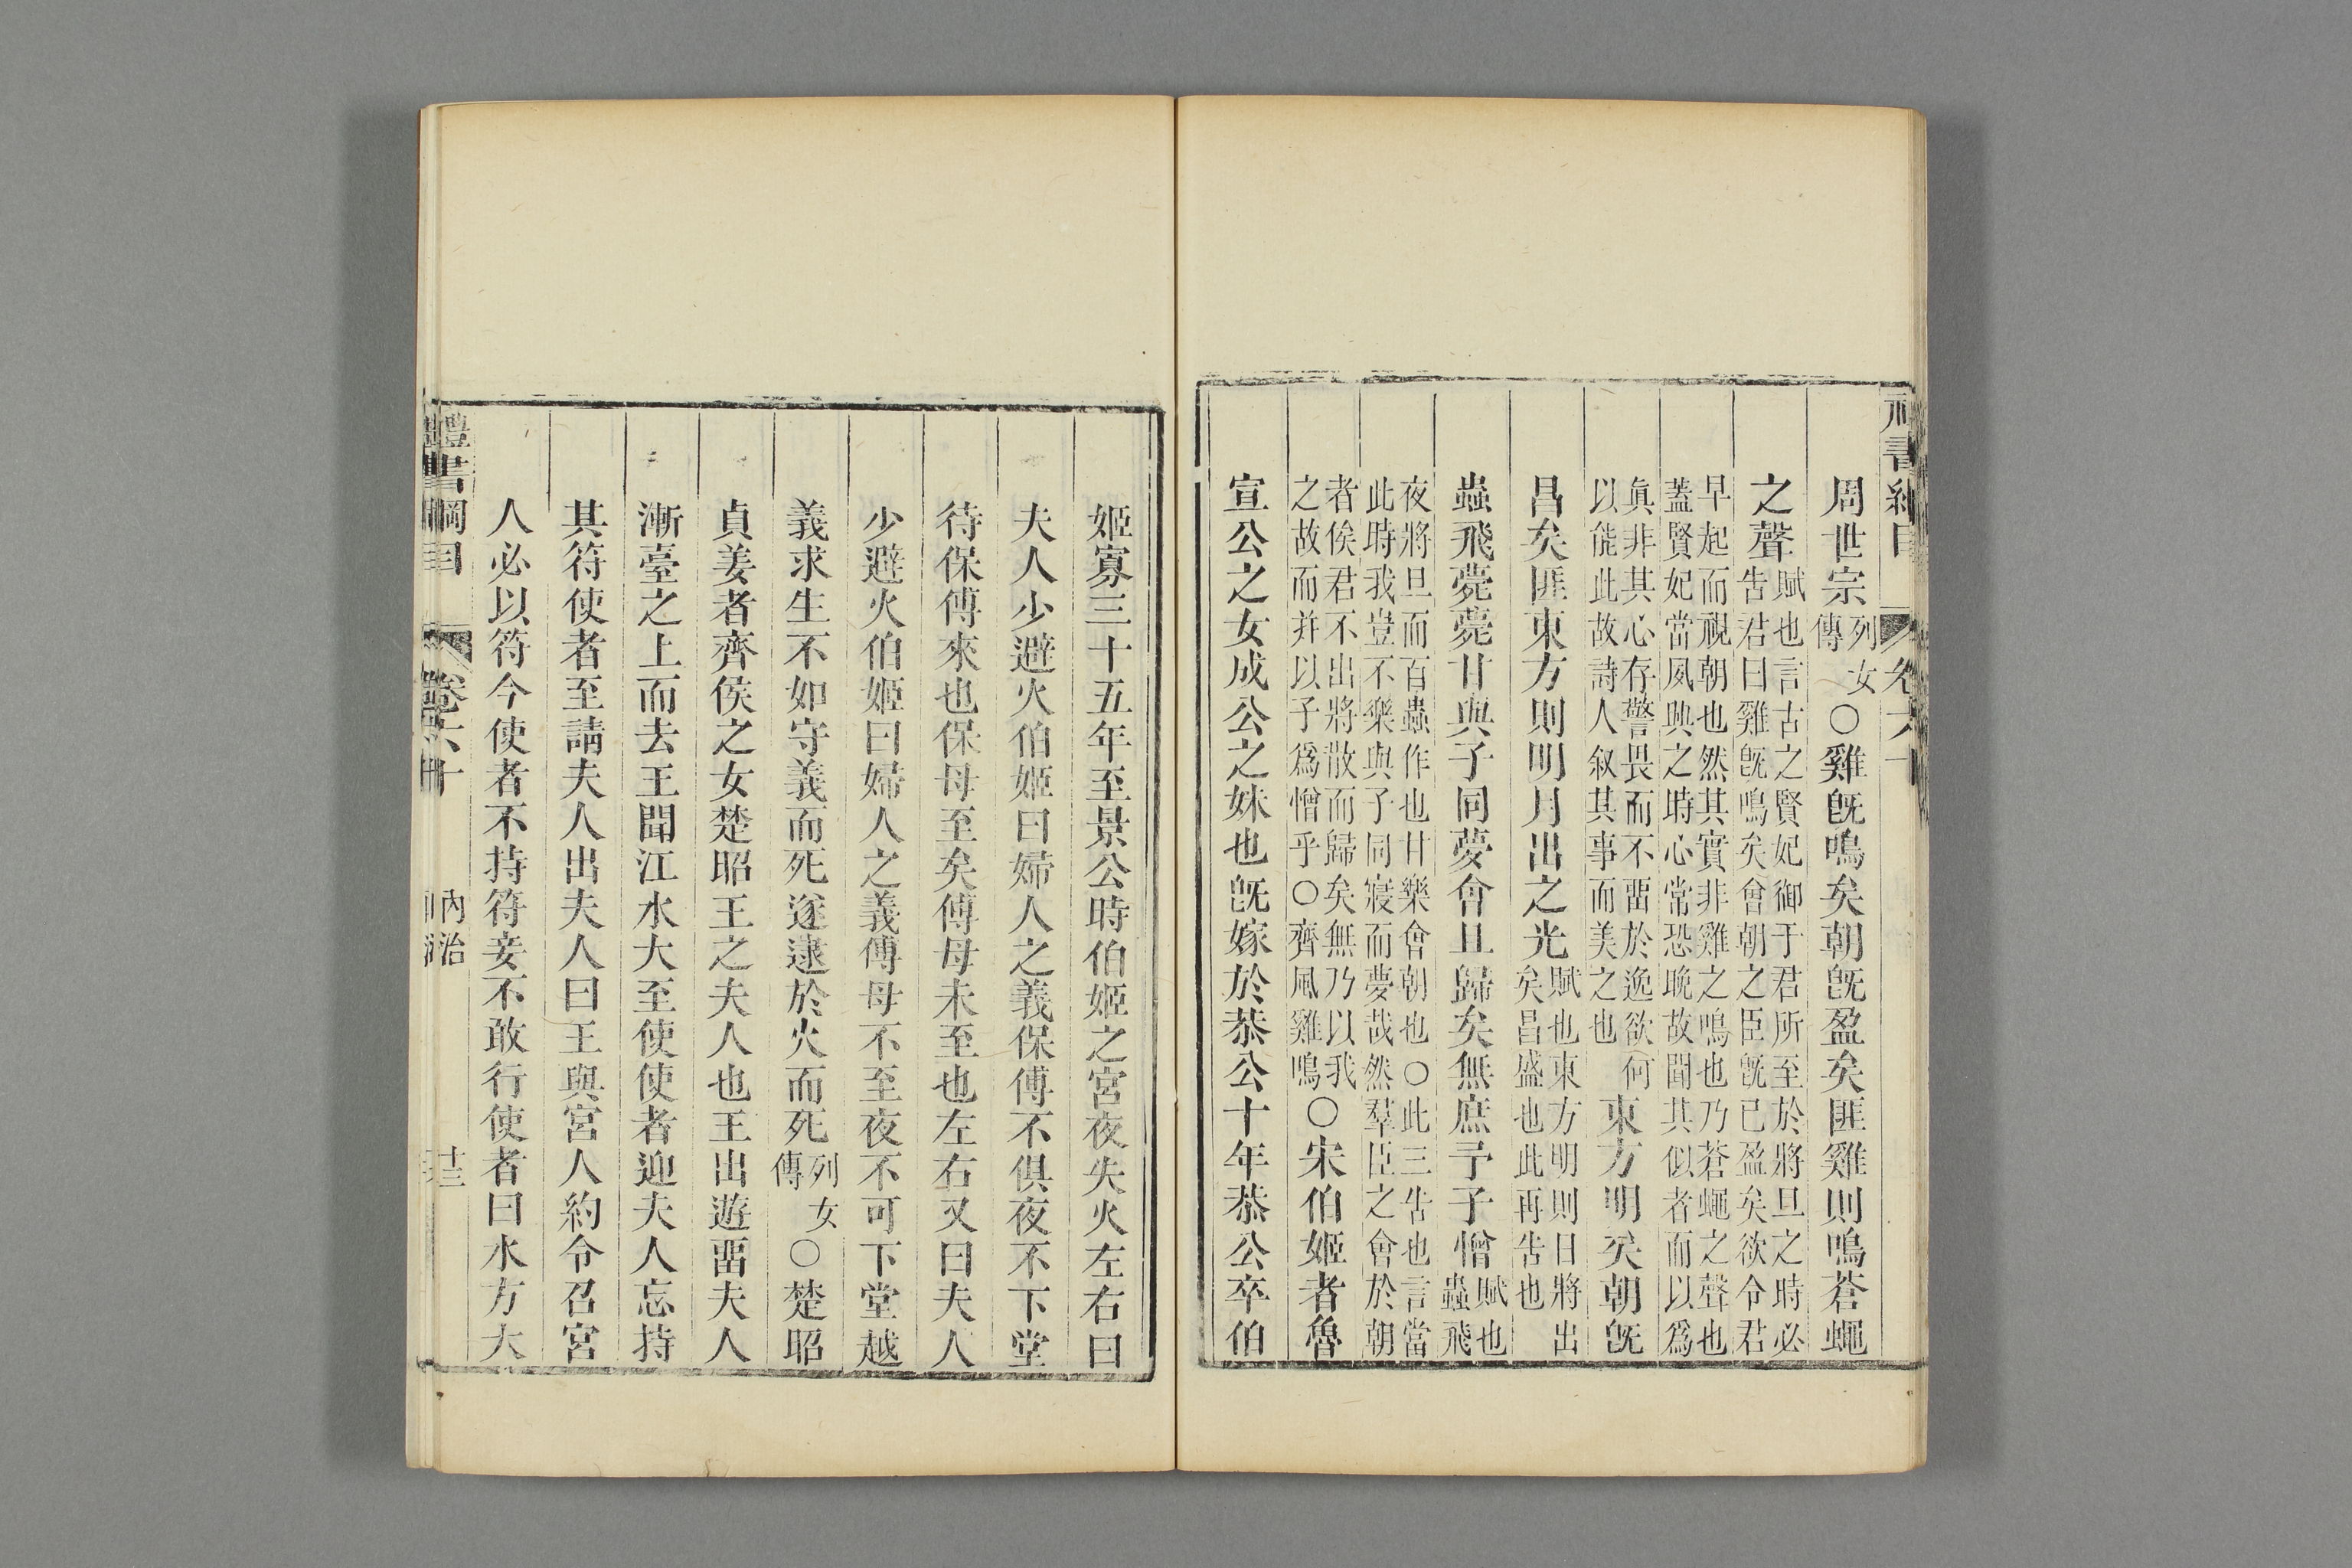 周世宗列女傳○雞旣鳴矣朝旣盈矣匪雞則鳴蒼蠅
之聲賦也言古之賢妃御于君所至於將旦之時必告君曰雞旣鳴矣會朝之臣旣已盈矣欲令君
早起而視朝也然其實非雞之鳴也乃蒼蠅之聲也蓋賢妃當夙興之時心常恐晚故聞其似者而以爲
眞非其心存警畏而不畱於逸欲何以能此故詩人叙其事而美之也東方明矣朝旣
昌矣匪東方則明月出之光賦也東方明則日將出矣昌盛也此再告也
蟲飛薨薨甘與子同夢會且歸矣無庶予子憎賦也蟲飛
夜將旦而百蟲作也甘樂會朝也○此三告也言當此時我豈不樂與子同寢而夢哉然羣臣之會於朝
者俟君不出將散而歸矣無乃以我之故而并以子爲憎乎○齊風雞鳴○宋伯姬者魯
宣公之女成公之妹也旣嫁於恭公十年恭公卒伯
姬寡三十五年至景公時伯姬之宮夜失火左右曰
夫人少避火伯姬曰婦人之義保傅不俱夜不下堂
待保傅來也保母至矣傅母未至也左右又曰夫人
少避火伯姬曰婦人之義傅母不至夜不可下堂越
義求生不如守義而死遂逮於火而死列女傳○楚昭
貞姜者齊侯之女楚昭王之夫人也王出遊畱夫人
漸臺之上而去王聞江水大至使使者迎夫人忘持
其符使者至請夫人出夫人曰王與宮人約令召宮
人必以符今使者不持符妾不敢行使者曰水方大
禮書綱目 卷六十 內治 十三